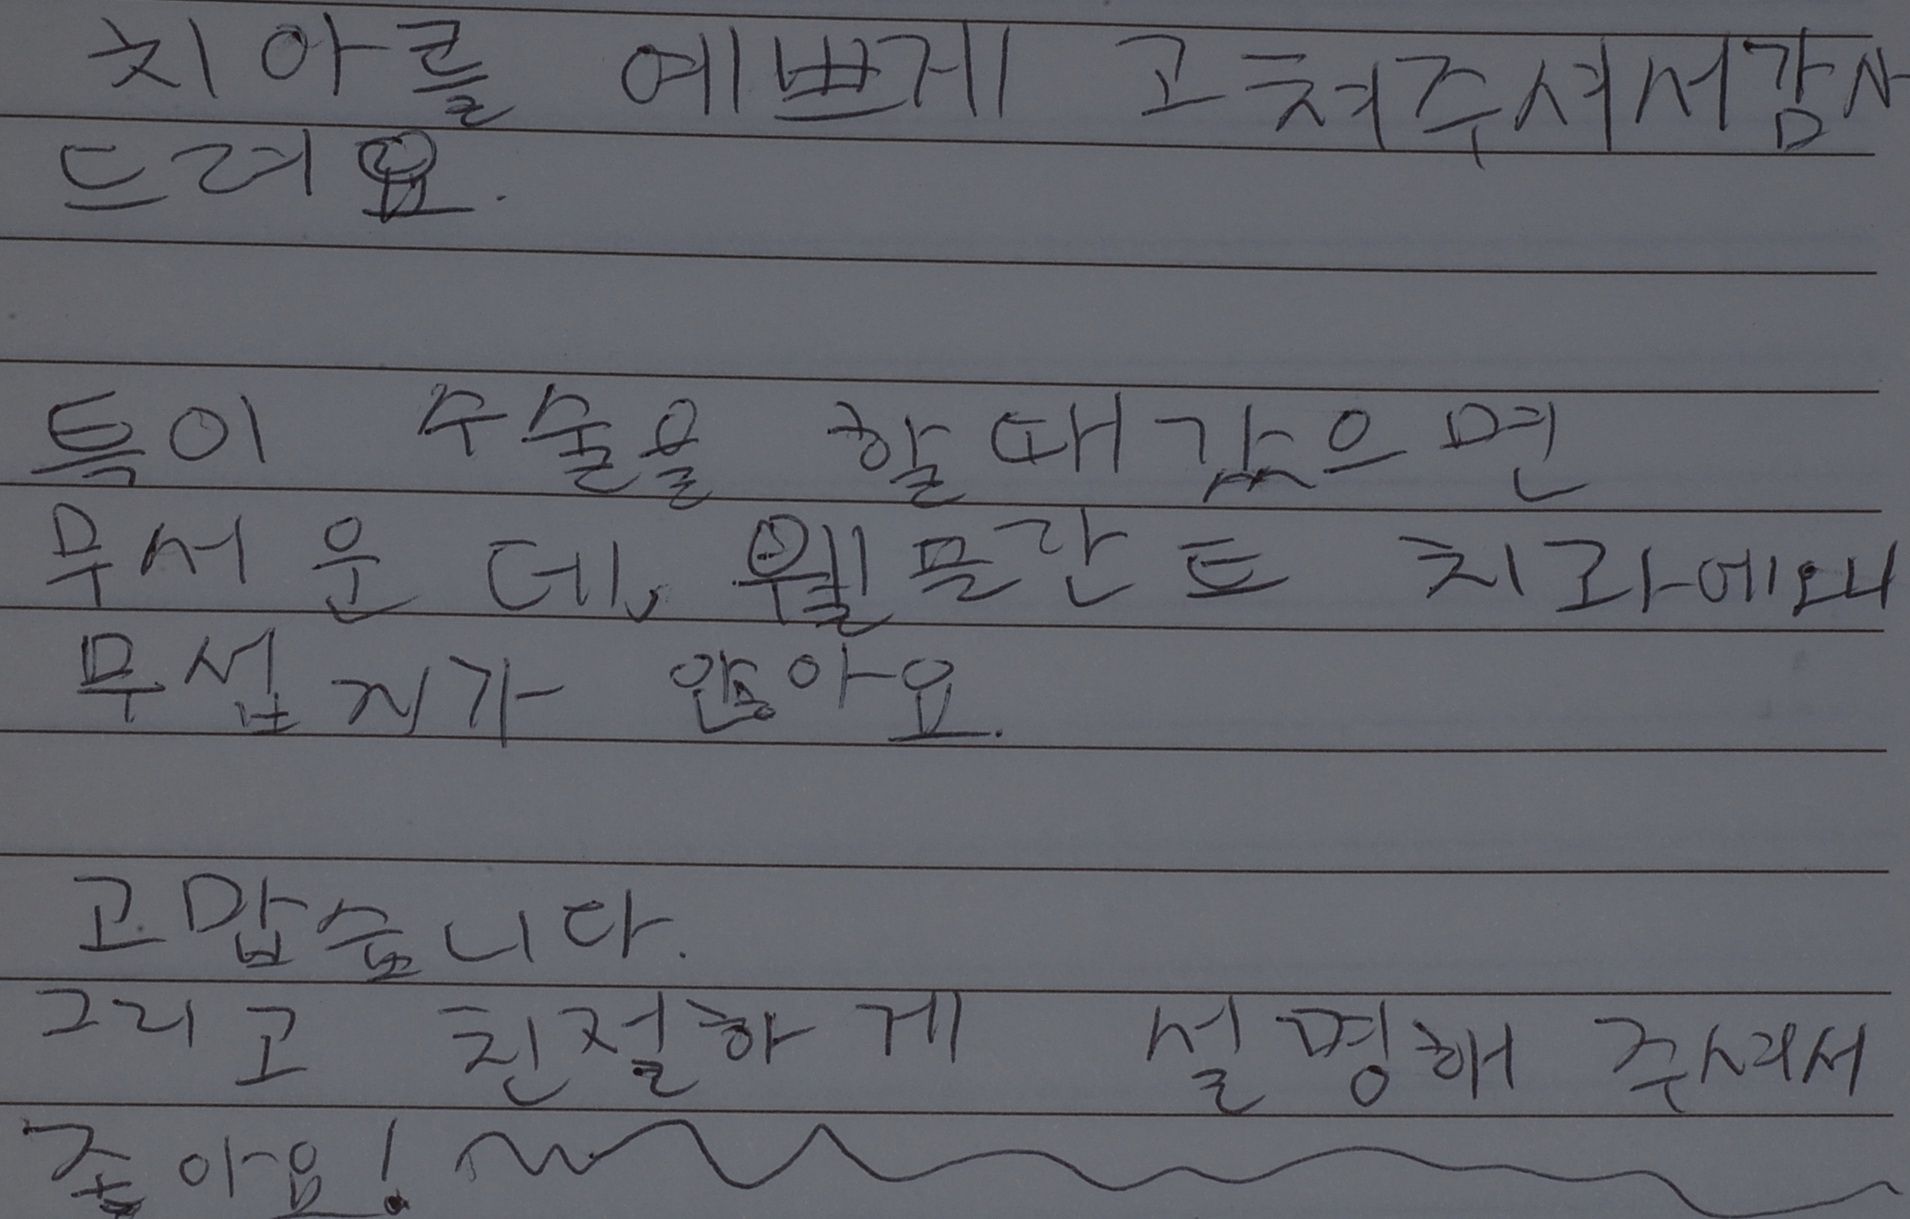 치아를 예쁘게 고쳐주셔서감사
드려요.
특이 수술을 할때같으면
무서운데, 웰믈란트 치과에오니
무섭지가 않아요.
고맙습니다.
그리고 친절하게 설명해 주셔서
좋아요!